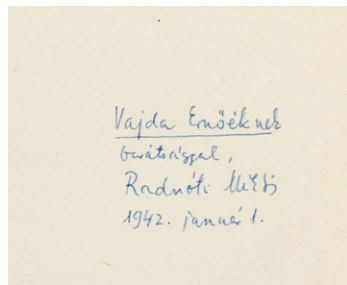 Vajda Ernőéknek
barátsággal,
Radnóti Miklós
1942. január 1.